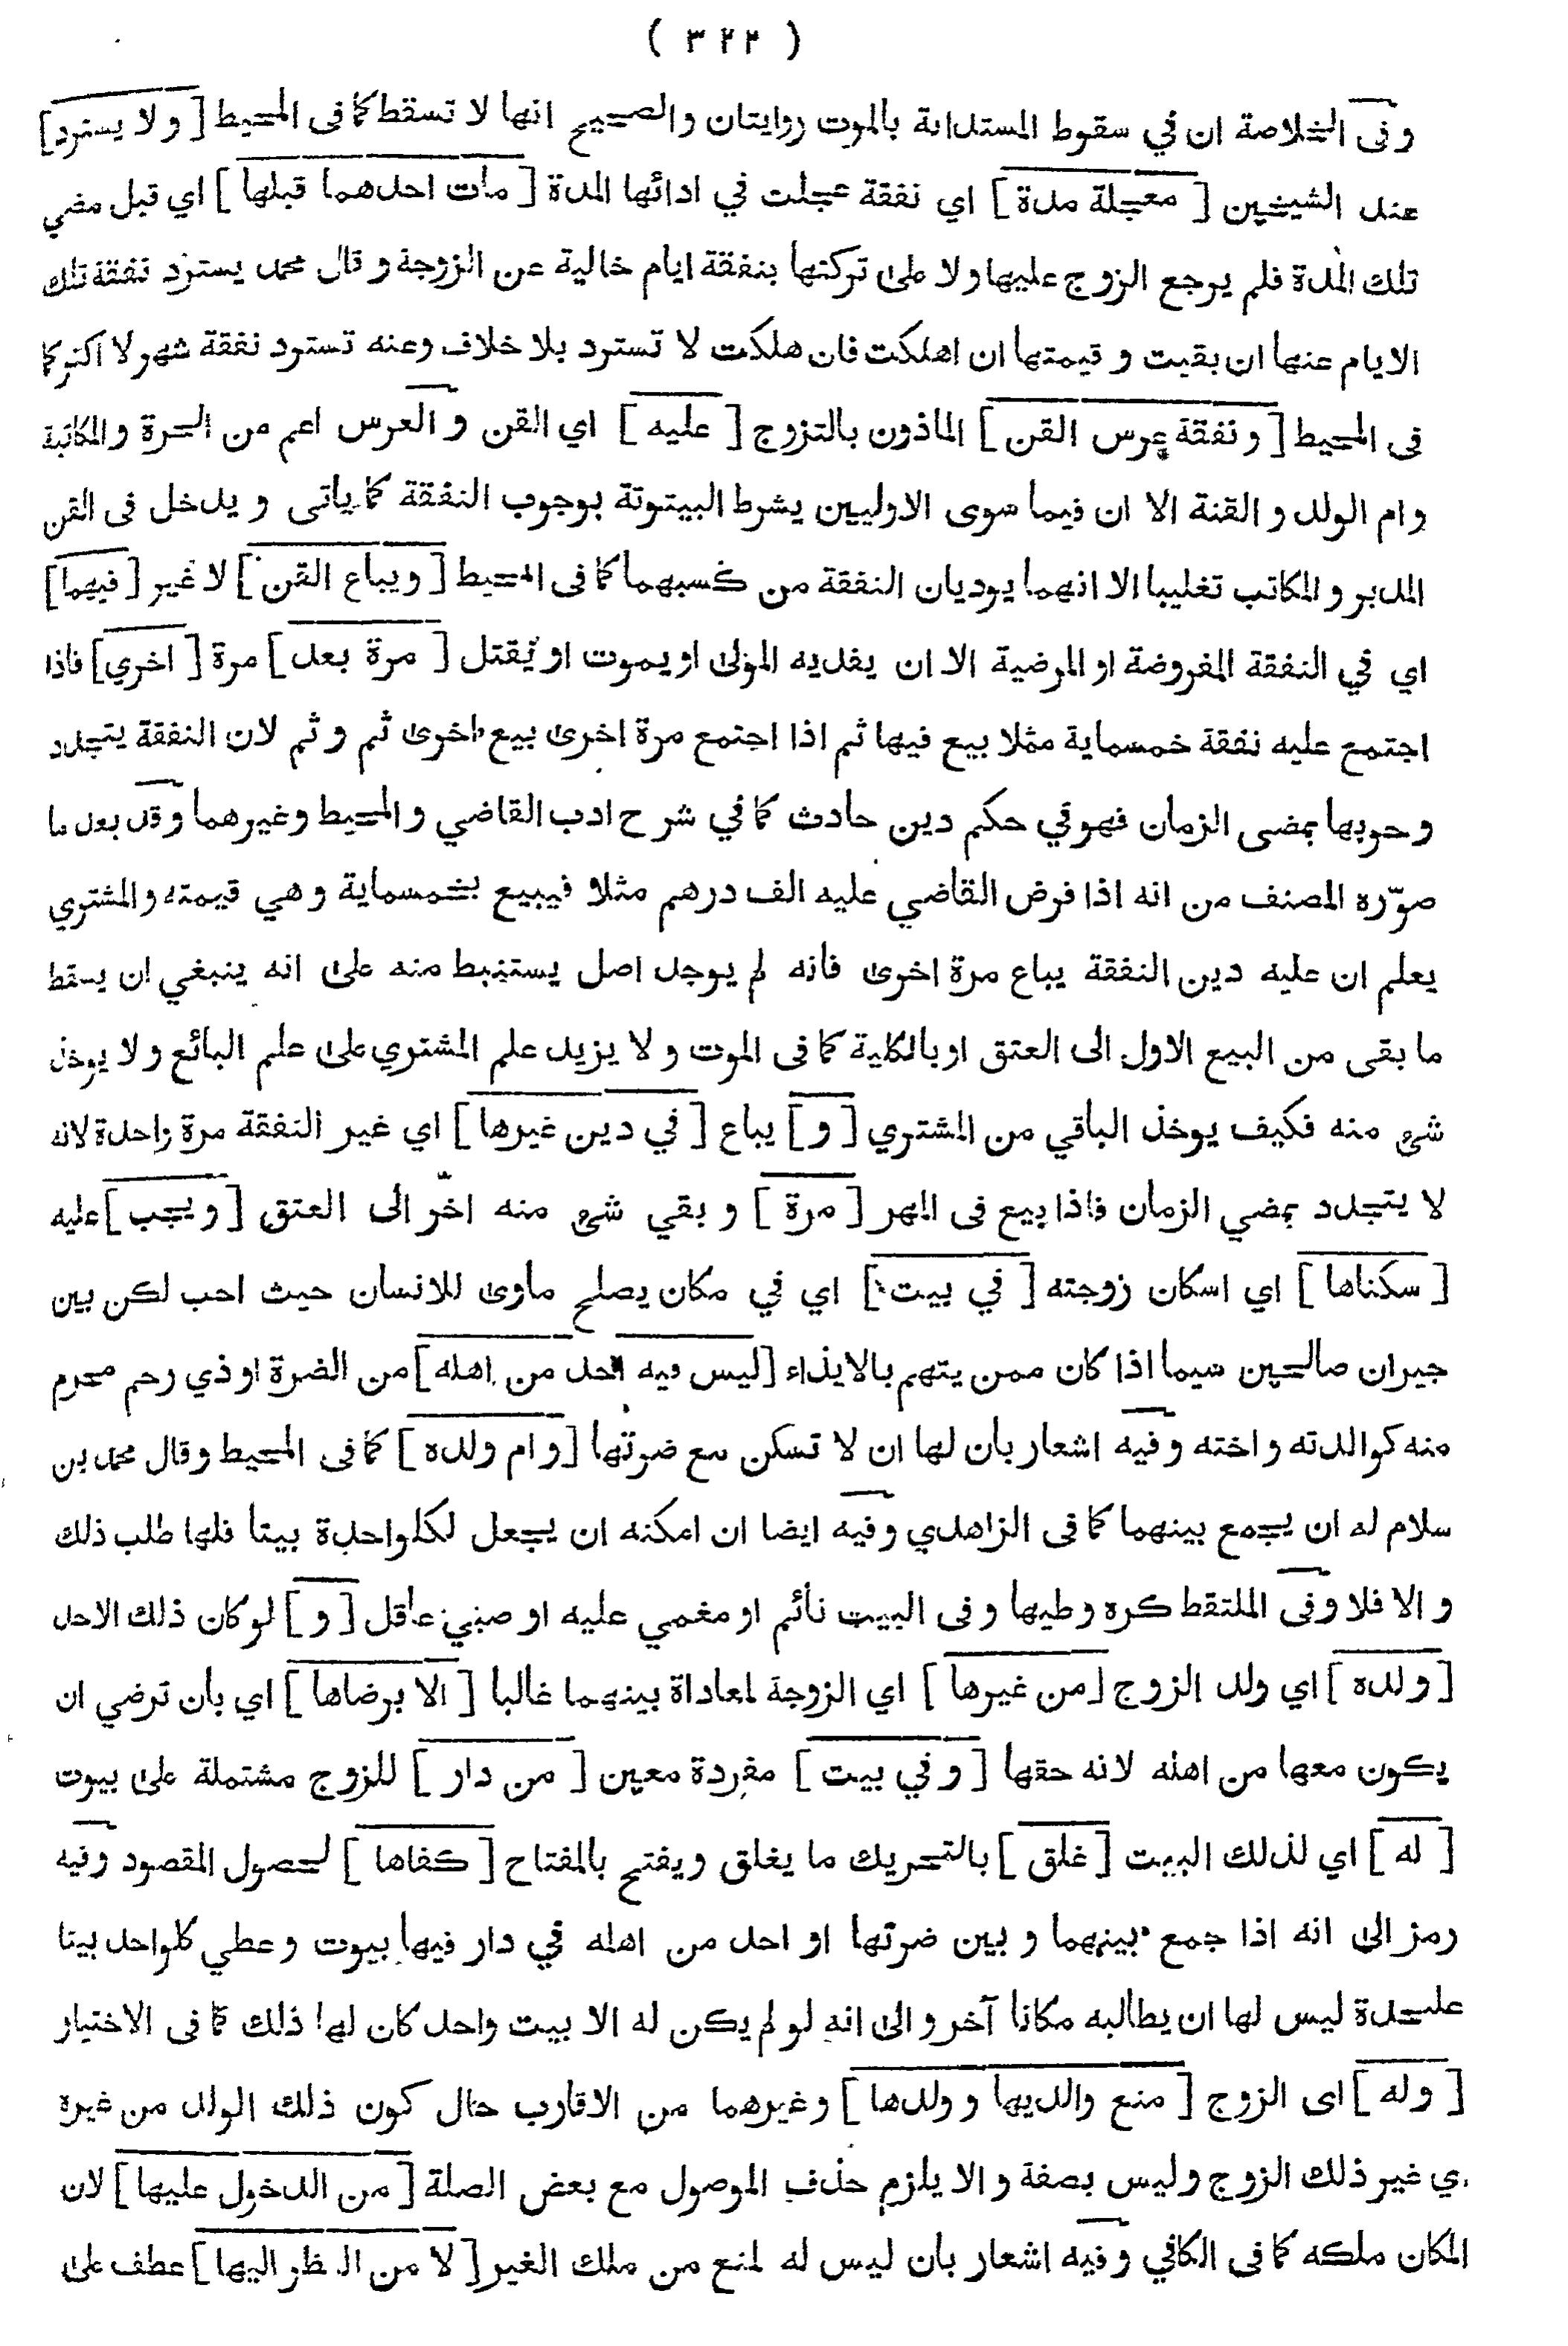 ( ٣٢٢ )
وفى الخلاصة ان في سقوط المستدانة بالموت روايتان والصحيح انها لا تسقط كما فى المحيط [ولا يسترد]
عند الشيخين [معجلة مدة] اي نفقة عجلت في ادائها المدة [مات احدهما قبلها] اي قبل مضي
تلك المدة فلم يرجع الزوج عليها ولا على تركتها بنفقة ايام خالية عن الزوجة و قال محمد يسترد نفقة تلك
الايام عنها ان بقيت و قيمتها ان اهلكت فان هلكت لا تسترد بلا خلاف وعنه تسترد نفقة شهر لا اكثر كما
فى المحيط [و نفقة عرس القن] الماذون بالتزوج [عليه] اي القن و العرس اعم من الحرة والمكاتبة
وام الولد و القنة الا ان فيما سوى الاوليين يشرط البيتوتة بوجوب النفقة كما ياتى و يدخل فى القن
المدبر و المكاتب تغليبا الا انهما يوديان النفقة من كسبهما كما فى المحيط [ويباع القن] لا غير [فيها]
اي في النفقة المفروضة او المرضية الا ان يفديه المولى او يموت او يقتل [مرة بعد] مرة [اخري] فاذا
اجتمع عليه نفقة خمسماية مثلا بيع فيها ثم اذا اجتمع مرة اخرى بيع اخرى ثم و ثم لان النفقة يتجدد
وجوبها بمضى الزمان فهو في حكم دين حادث كما في شرح ادب القاضي و المحيط وغيرهما وقد بعد ما
صوّره المصنف من انه اذا فرض القاضي عليه الف درهم مثلا فيبيع بخمسماية وهي قيمته والمشتري
يعلم ان عليه دين النفقة يباع مرة اخرى فانه لم يوجد اصل يستنبط منه على انه ينبغي ان يسقط
ما بقى من البيع الاول الى العتق او بالكلية كما فى الموت و لا يزيد علم المشتري على علم البائع ولا يوخذ
شئ منه فكيف يوخذ الباقي من المشتري [و] يباع [في دين غيرها] اي غير النفقة مرة واحدة لانه
لا يتجدد بمضي الزمان فاذا بيع فى المهر [مرة] و بقي شئ منه اخّر الى العتق [ويجب] عليه
[سكناها] اي اسكان زوجته [في بيت] اي في مكان يصلح ماوى للانسان حيث احب لكن بين
جيران صالحين سيما اذا كان ممن يتهم بالايذاء [ليس فيه احد من اهله] من الضرة او ذي رحم محرم
منه كوالدته و اخته وفيه اشعار بان لها ان لا تسكن مع ضرتها [وام ولده] كما فى المحيط وقال محمد بن
سلام له ان يجمع بينهما كما فى الزاهدي وفيه ايضا ان امكنه ان يجعل لكل واحدة بيتا فلها طلب ذلك
و الا فلا وفى الملتقط كره وطيها وفى البيت نائم او مغمي عليه او صبي عاقل [و] لو كان ذلك الاحد
[ولده] اي ولد الزوج [من غيرها] اي الزوجة لمعاداة بينهما غالبا [الا برضاها] اي بان ترضي ان
يكون معها من اهله لانه حقها [وفي بيت] مفردة معين [من دار] للزوج مشتملة على بيوت
[له] اي لذلك البيت [غلق] بالتحريك ما يغلق ويفتح بالمفتاح [كفاها] لحصول المقصود وفيه
رمز الى انه اذا جمع بينهما و بين ضرتها او احد من اهله في دار فيها بيوت وعطي كلواحد بيتا
عليحدة ليس لها ان يطالبه مكانا آخر والى انه لو لم يكن له الا بيت واحد كان لها ذلك كما فى الاختيار
[وله] اى الزوج [منع والديها و ولدها] وغيرهما من الاقارب حال كون ذلك الولد من غيره
اي غير ذلك الزوج وليس بصفة و الا يلزم حذف الموصول مع بعض الصلة [من الدخول عليها] لان
المكان ملكه كما فى الكافي وفيه اشعار بان ليس له لمنع من ملك الغير [لا من النظر اليها] عطف على